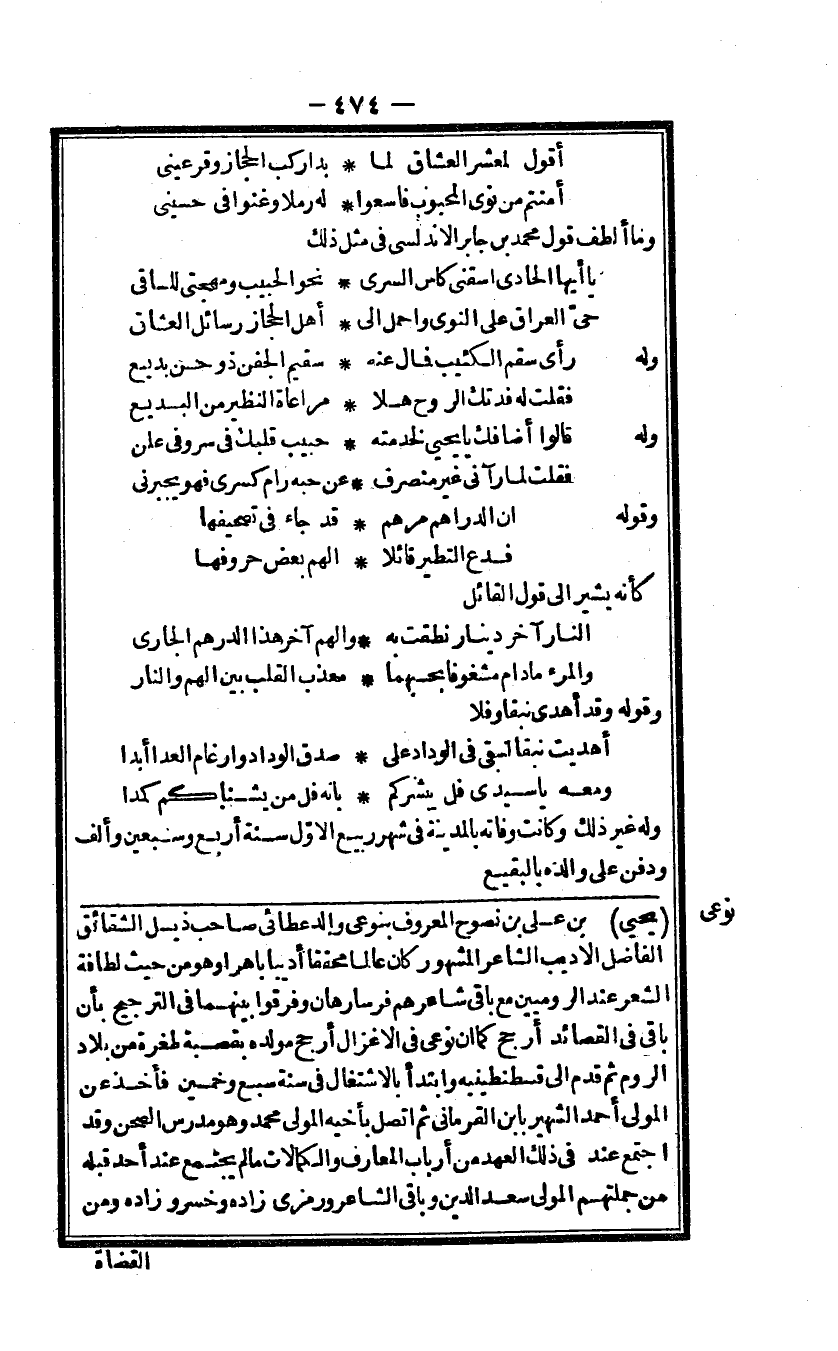 — ٤٧٤ —
أقول لمعشر العشاق لما * بدا ركب الحجاز وقر عينى
أمنتم من نوى المحبوب فاسعوا * له رملا وغنوا فى حسينى
وما ألطف قول محمد بن جابر الاندلسى فى مثل ذلك
يا أيها الحادى اسقنى كاس السرى * نحو الحبيب ومهجتى للساقى
حىّ العراق على النوى واحمل الى * أهل الحجاز رسائل العشاق
وله رأى سقم الكئيب فمال عنه * سقيم الجفن ذو حسن بديع
فقلت له فدتك الروح هلا * مراعاة النظير من البديع
وله قالوا أضافك يا يحيى لخدمته * حبيب قلبك فى سر وفى علن
فقلت لما رآنى غير منصرف * عن حبه رام كسرى فهو يجبرنى
وقوله ان الدراهم مرهم * قد جاء فى تصحيفها
فدع التطير قائلا * الهم بعض حروفها
كأنه يشير الى قول القائل
النار آخر دينار نطقت به * والهم آخر هذا الدرهم الجارى
والمرء مادام مشغوفا بحبهما * معذب القلب بين الهم والنار
وقوله وقد أهدى نبقا وفلا
أهديت نبقا لنبقى فى الوداد على * صدق الوداد وارغام العدا أبدا
ومعه ياسيدى فل يبشركم * بانه فل من يشناكم كمدا
وله غير ذلك وكانت وفاته بالمدينة فى شهر ربيع الاوّل سنة أربع وسبعين وألف
ودفن على والده بالبقيع
نوعى
(يحيى) بن على بن نصوح المعروف بنوعى والد عطائى صاحب ذيل الشقائق
الفاضل الاديب الشاعر المشهور كان عالما محققا أديبا باهرا وهو من حيث لطافة
الشعر عند الروميين مع باقى شاعرهم فرسا رهان وفرقوا بينهما فى الترجيح بأن
باقى فى القصائد أرجح كما ان نوعى فى الاغزال أرجح مولده بقصبة طغرة من بلاد
الروم ثم قدم الى قسطنطينيه وابتدأ بالاشتغال فى سنة سبع وخمسين فأخذ عن
المولى أحمد الشهير بابن القرمانى ثم اتصل بأخيه المولى محمد وهو مدرس الصحن وقد
اجتمع عند فى ذلك العهد من أرباب المعارف والكمالات مالم يجتمع عند أحد قبله
من جملتهم المولى سعد الدين وباقى الشاعر ورمزى زاده وخسرو زاده ومن
القضاة